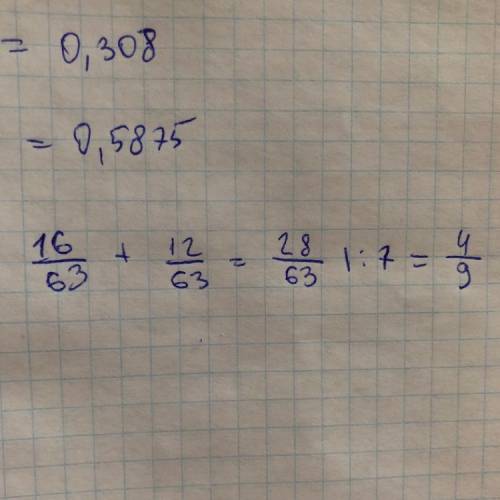 = 0,308
= 0,5875
16/63 + 12/63 = 28/63 |:7 = 4/9